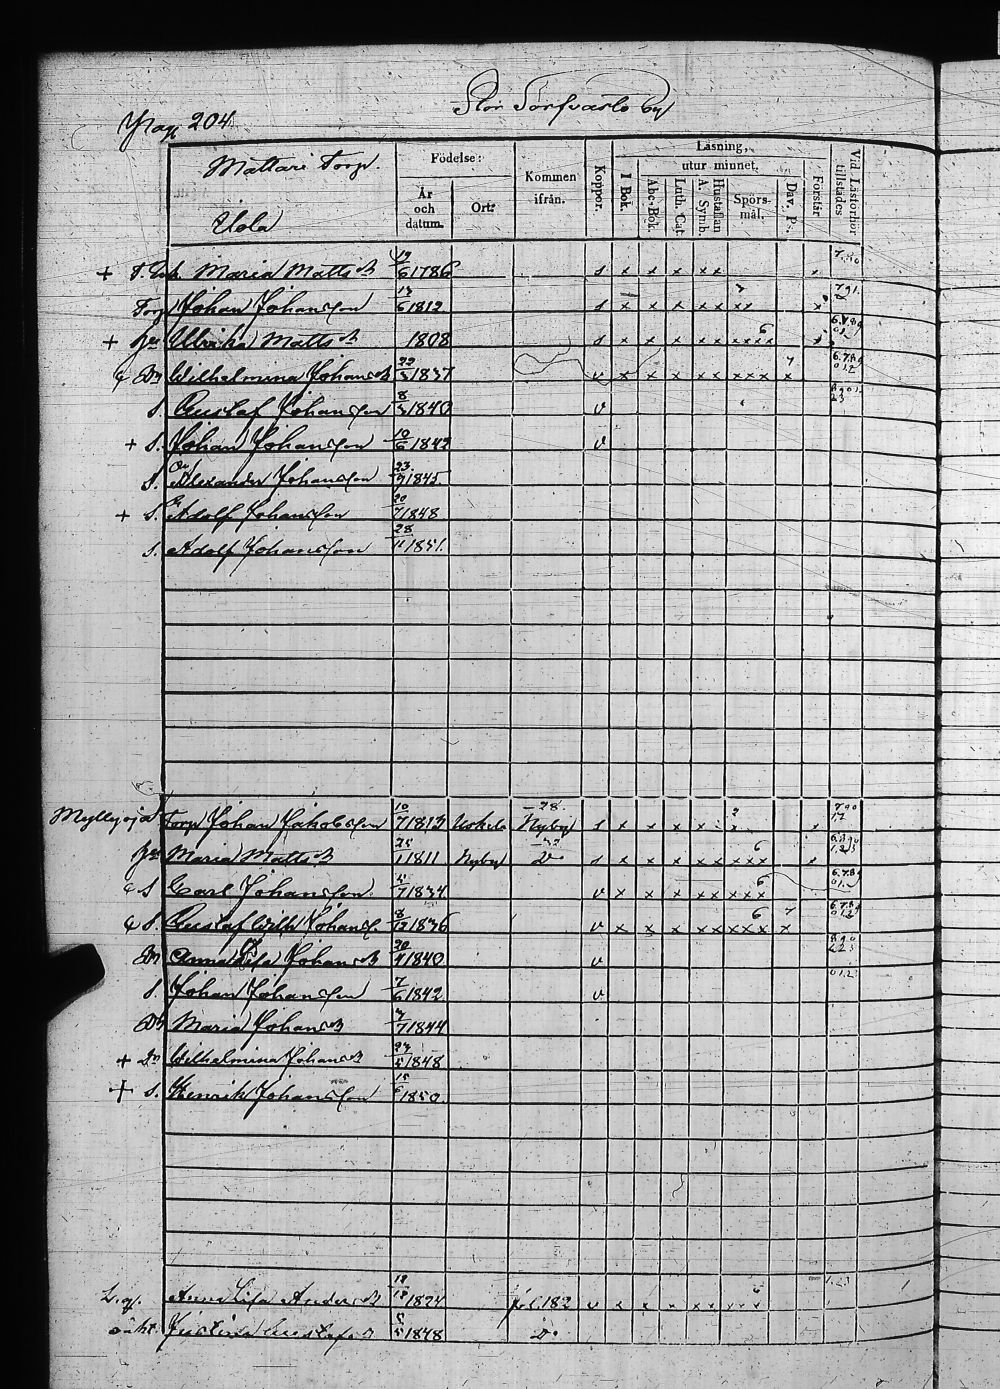 Stor Torfvasto by
Pag 204.
Mattari Torp.
Uola
Födelse:
År och datum.
Ort:
Kommen ifrån.
Koppor.
Läsning,
utur minnet.
I Bok.
Abc-Bok.
Luth. Cat.
Hustaflan A. Symb.
Spörs-mål.
Dav. Ps.
Förstår
Vid Läsförhör tillstädes
+ Maria Matts D 19/6 1786 s x x x x x
Torp Johan Johansson 13/6 1812 s x x x x x x x
+ Hu Ulrika Matts D 1808 s x x x x x x x x x
Dr Wilhelmina Johans D 22/3 1837 v x x x x x x x x x
S. Gustaf Johansson 8/3 1840 v
+ S. Johan Johansson 10/6 1842 v
S. Alexander Johansson 23/9 1845
+ S. Adolf Johansson 20/7 1848
S. Adolf Johansson 28/11 1851.
Myllyoja Torp Johan Jakobsson 10/7 1813 Uskela Nyby 28. s x x x x x x
Hu Maria Matts D 25/1 1811 Nyby Do s x x x x x x x x
S Carl Johansson 5/7 1834 v x x x x x x x x
S. Gustaf Wilh Johanss. 8/12 1836 v x x x x x x x x x
Dr Anna Lisa Johans D 20/4 1840 v
S. Johan Johansson 7/6 1842 v
Dr Maria Johans D 7/7 1844
+ Dr Wilhelmina Johans D 27/5 1848
+ S. Henrik Johansson 15/6 1850
Anna Lisa Anders D 1824 fol. 182 v x x x x x x x x
oäkt. Justina Gustafs D 5/5 1848 Do